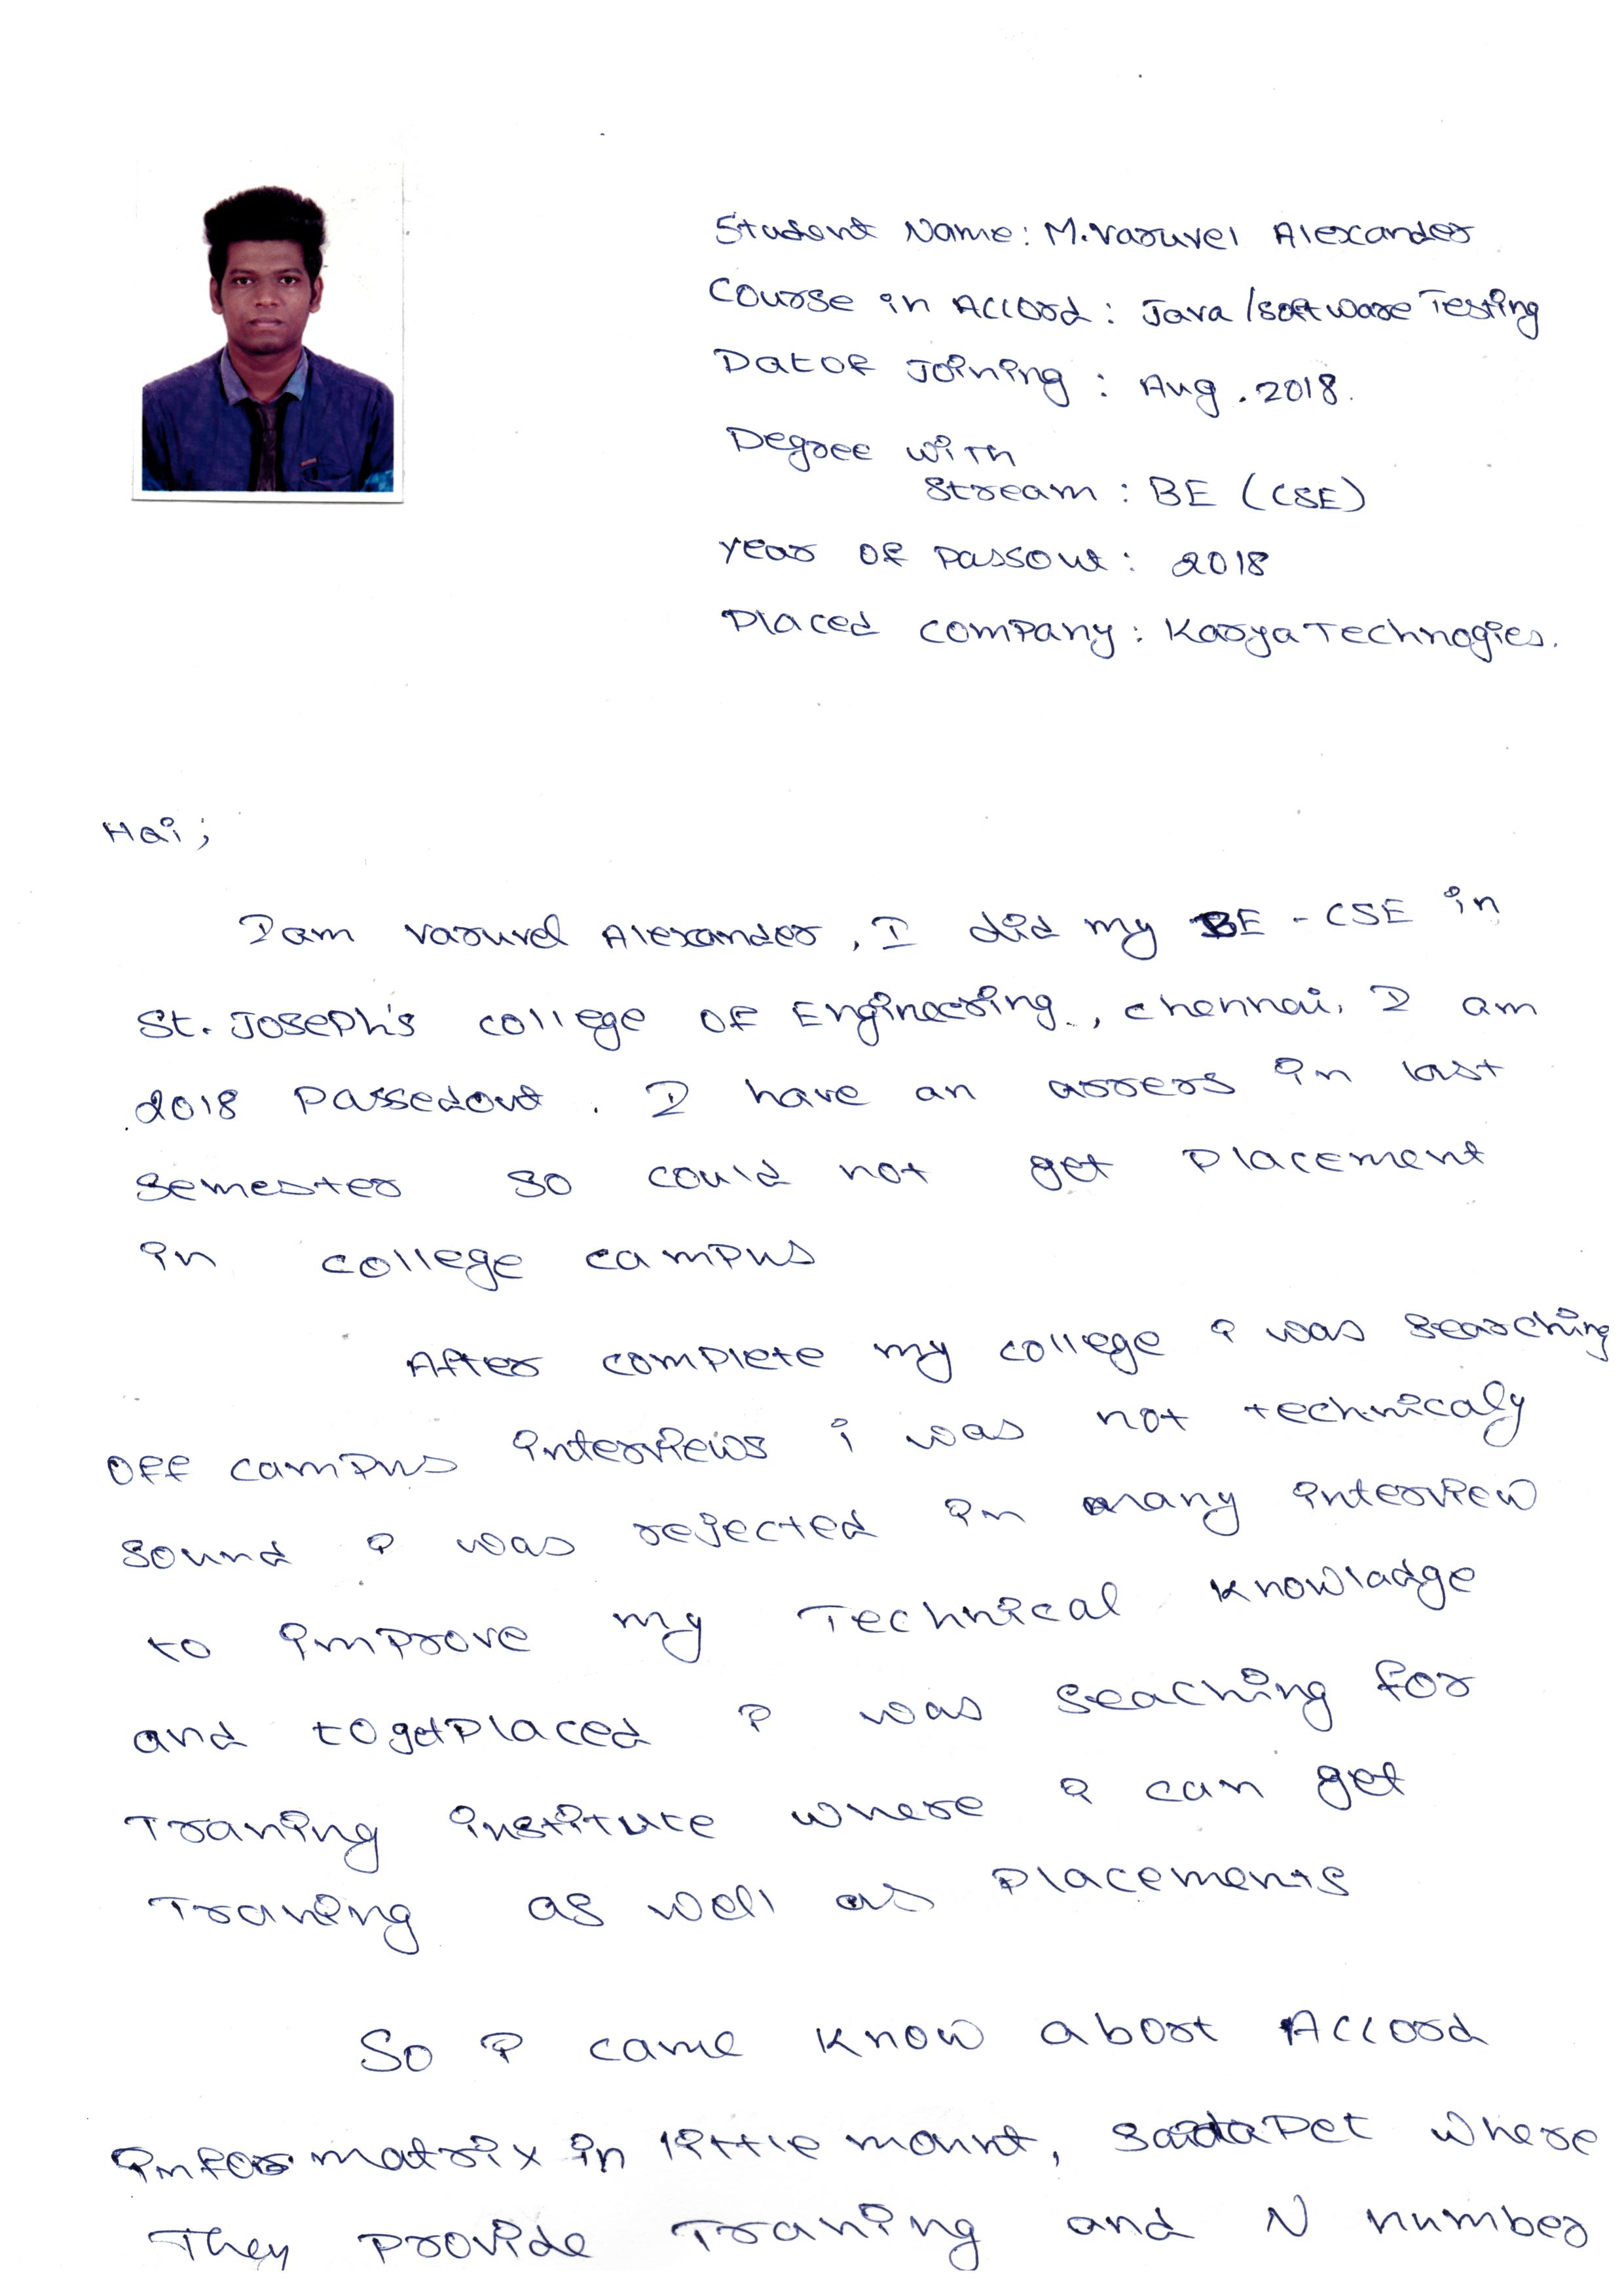 Student Name: M.Varuvel Alexander
Course in Accord: Java/software Testing
Datof Joining: Aug. 2018.
Degree with
Stream: BE (CSE)
year of passout: 2018
Placed company: Karya Technogies.
Hai;
I am Varuvel Alexander, I did my BE - CSE in
St. Joseph's college of Engineering., chennai. I am
2018 Passedout. I have an arrers in last
semester so could not get placement
in college campus
After complete my college i was searching
off campus interviews i was not technicaly
sound i was rejected in many interview
to improve my Technical knowladge
and to get placed i was seaching for
Traning institute where i can get
Traning as well as placements
So i came know abort Accord
infor matrix in little mount, Saidapet where
They provide Traning and N number